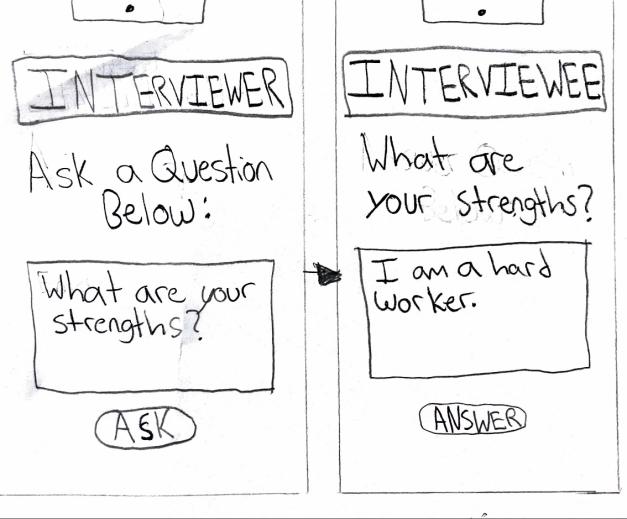 INTERVIEWER
Ask a Question
Below:
What are your
strengths?
ASK
INTERVIEWEE
What are
your strengths?
I am a hard
worker.
ANSWER